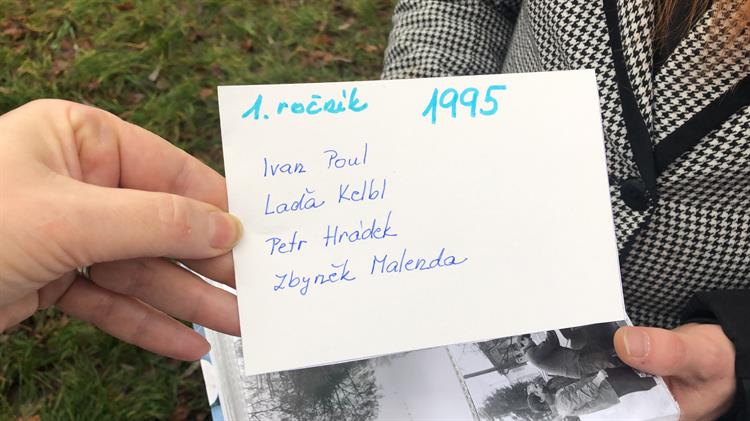 1. ročník 1995
Ivan Poul
Laďa Kelbl
Petr Hrádek
Zbyněk Malenda